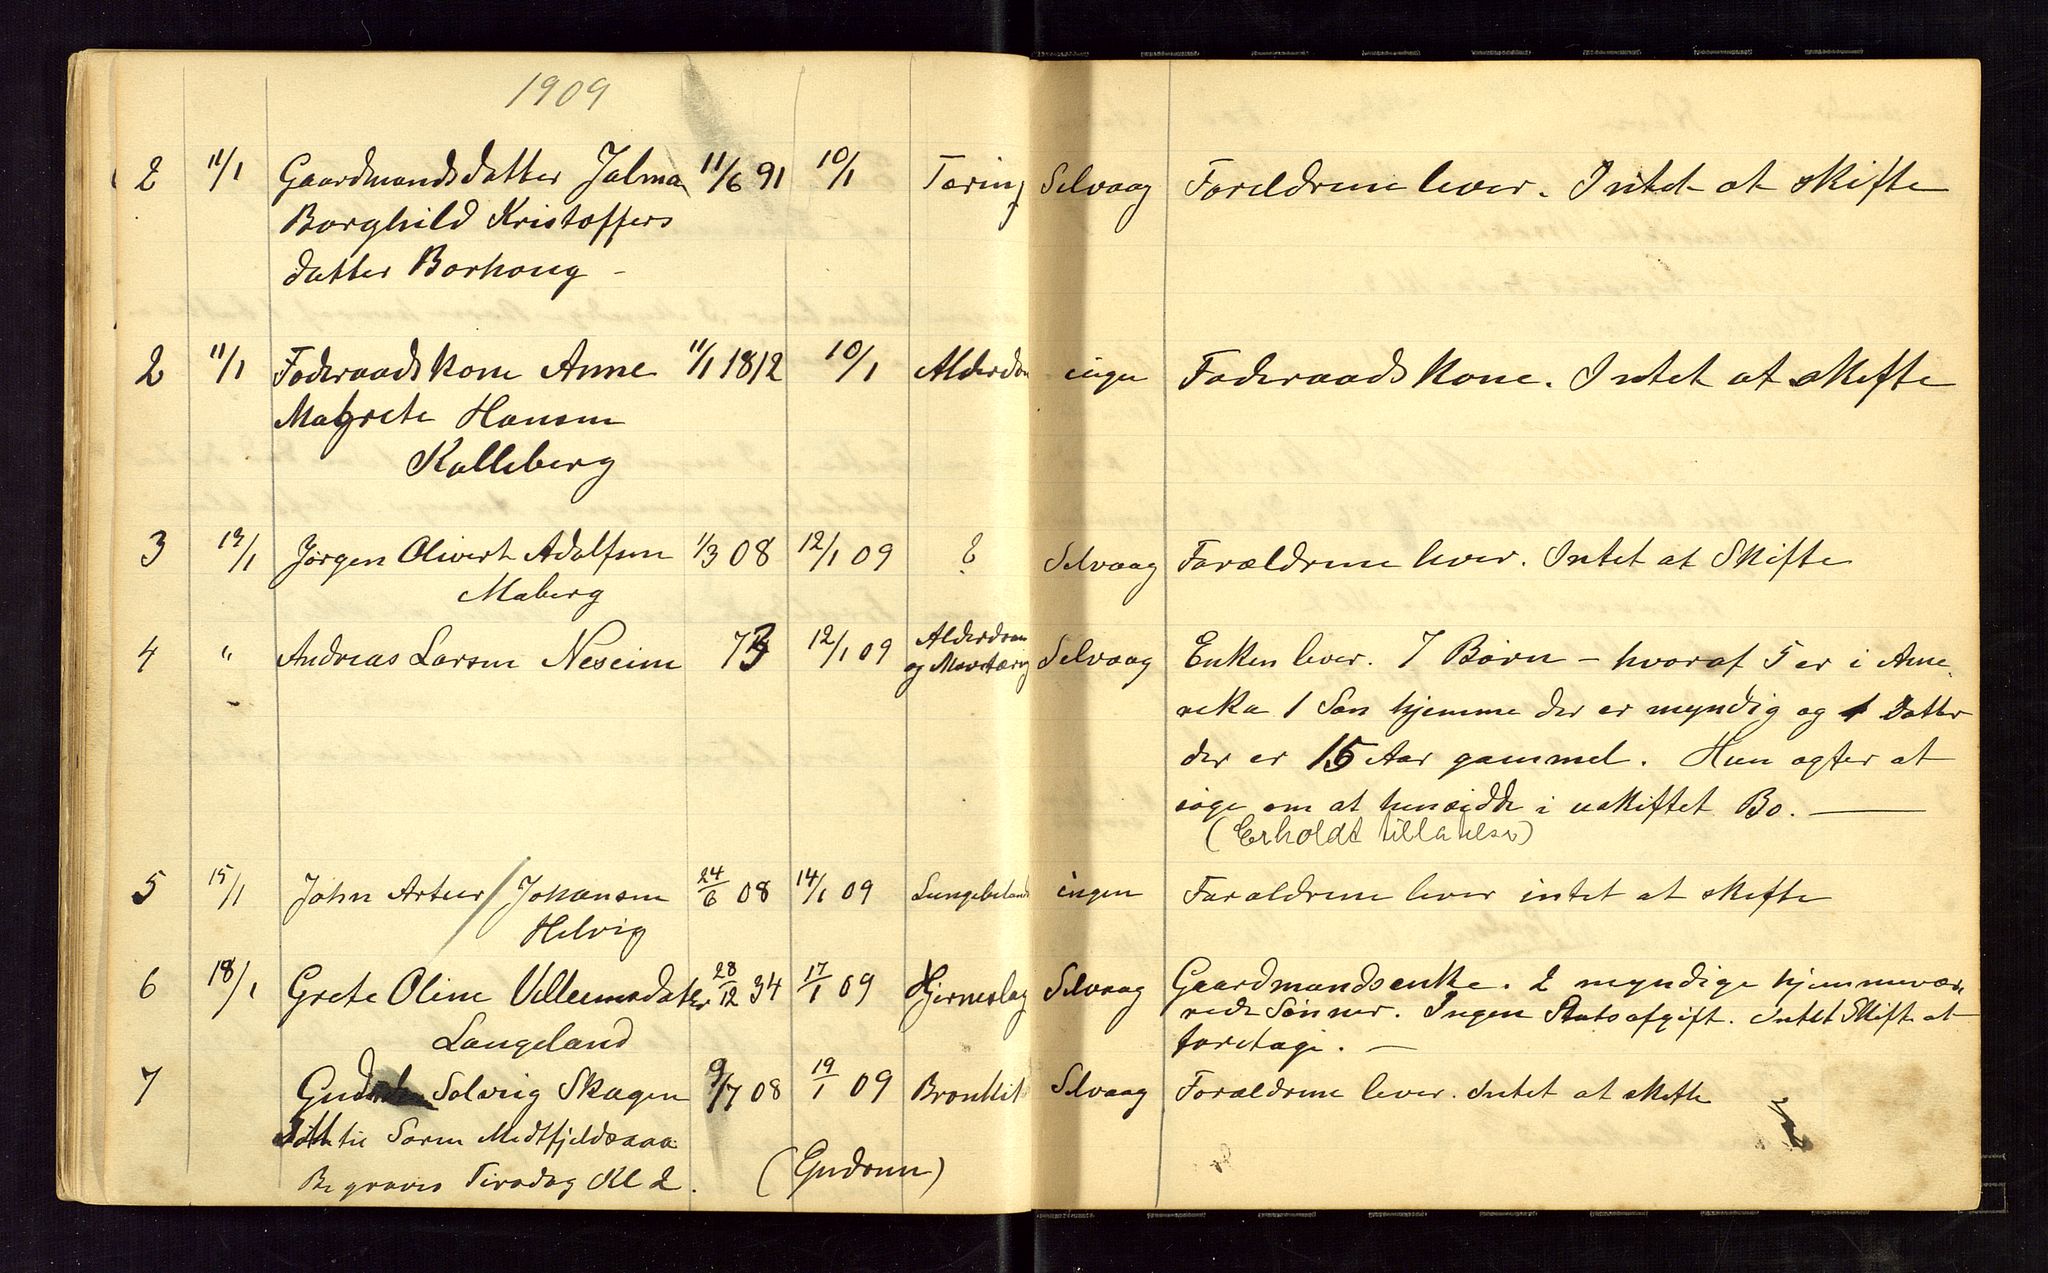 1909
2 11/1 Gaardmandsdatter Jalma 11/6 91 10/1 Tæring Selvaag Forældrene lever. Intet at skifte
Borghild Kristoffers
datter Borhaug -
2 11/1 Føderaadskone Anne 11/1 1812 10/1 Alderdom ingen Føderaadskone. Intet at skifte
Magrete Hansen
Kalleberg
3 13/1 Jørgen Olivert Adolfsen 1/3 08 12/1 09 ? Selvaag Forældrene lever. Intet at Skifte
Maberg
4 " Andreas Larsen Neseim 73 12/1 09 Alderdom Selvaag Enken lever. 7 Børn - hvoraf 5 er i Ame-
og Mavetæring
reka 1 Søn hjemme der er myndig og 1 Datter
der er 15 Aar gammel. Hun agter at
søge om at hensidde i uskiftet Bo. —
(Erholdt tilladelse)
5 15/1 John Artur / Johansen 24/6 08 14/1 09 Lungebetænd ingen Forældrene lever intet at skifte
Helvig
6 18/1 Grete Oline Villumsdatter 28/12 34 17/1 09 Hjerneslag Selvaag Gaardmandsenke. 2 myndige hjemmevær-
rede Sønner. Ingen Statsafgift. Intet Skifte at
Langeland
foretage. —
7 Solveig Skagen 9/7 08 19/1 09 Bronkit Selvaag Forældrene lever. Intet at skifte
Datter til Søren Midtfjeldsaa
Begraves Tirsdag Kl 2. (Gudrun)